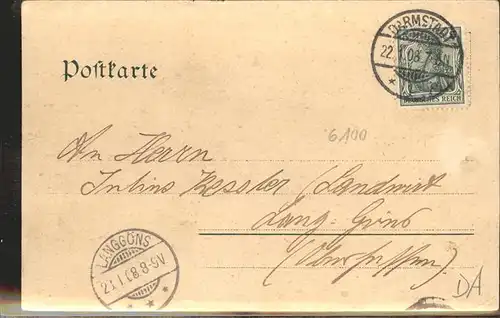 DARMSTADT
22.1.08.7-8N
DEUTSCHES REICH
Postkarte
6.100
An Herrn
Julius Kessler (Landwirt
Lang-Göns
(Oberhessen).
LANGGÖNS
23.1.08.8-9V
DA